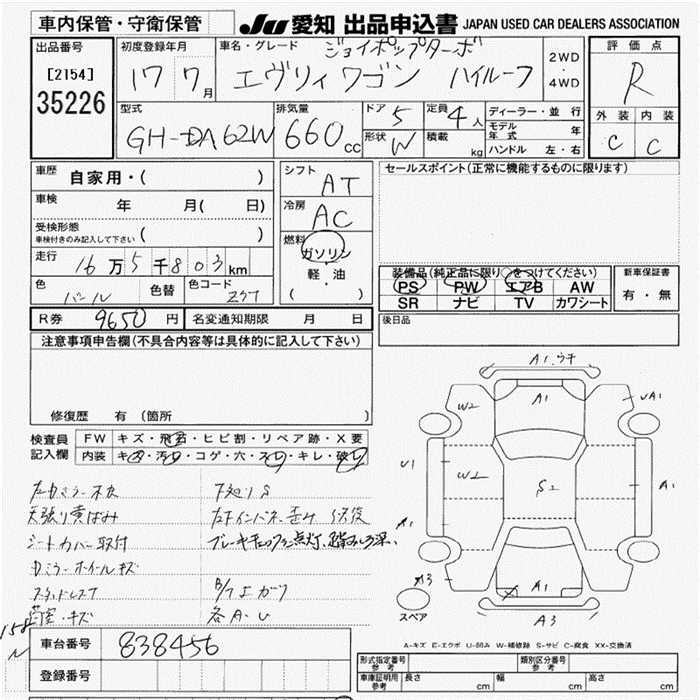 車内保管・守衛保管
JU 愛知 出品申込書 JAPAN USED CAR DEALERS ASSOCIATION
出品番号
[2154]
35226
初度登録年月
17 7月
車名・グレード ジョイポップターボ
エヴリィワゴン ハイルーフ
2WD
・
4WD
評価点
R
外装 内装
C C
型式
GH-DA62W
排気量
660cc
ドア 5
形状 W
定員 4人
積載 kg
ディーラー・並行
モデル年式 年
ハンドル 左・右
車歴
自家用・( )
車検 年 月( 日)
受検形態
車検付きのみ記入して下さい ( )
走行 16万5千803km
色 パール 色替 色コード Z7T
シフト AT
冷房 AC
燃料
ガソリン
軽・油
( )
セールスポイント(正常に機能するものに限ります)
装備品(純正品に限り○をつけてください)
PS PW エアB AW
SR ナビ TV カワシート
新車保証書
有・無
後日品
R券 9650円 名変通知期限 月 日
注意事項申告欄(不具合内容等は具体的に記入して下さい)
修復歴 有(箇所
検査員
記入欄
FW キズ・飛石・ヒビ割・リペア跡・X要
内装 キズ・汚れ・コゲ・穴・スレ・キレ・破れ
天張り黄ばみ
シートカバー取付
ミラーホイールキズ
荷室・キズ
下廻りS
各A・U
A1
W2
A1
UA1
U1
W2
S2
A1
A1
A3
A1
A3
スペア
A-キズ E-エクボ U-凹み W-補修跡 S-サビ C-腐食 XX-交換済
車台番号 838456
登録番号
形式指定番号
参考
類別区分番号
参考
車庫証明用
参考
長さ cm 幅 cm 高さ cm